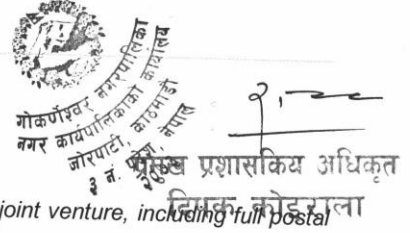 गोकर्णेश्वर नगरपालिका
नगर कार्यपालिकाको कार्यालय
जोरपाटी, काठमाडौं
३ नं. प्रदेश, नेपाल
प्रमुख प्रशासकिय अधिकृत
दिपक कोइराला
joint venture, including full postal